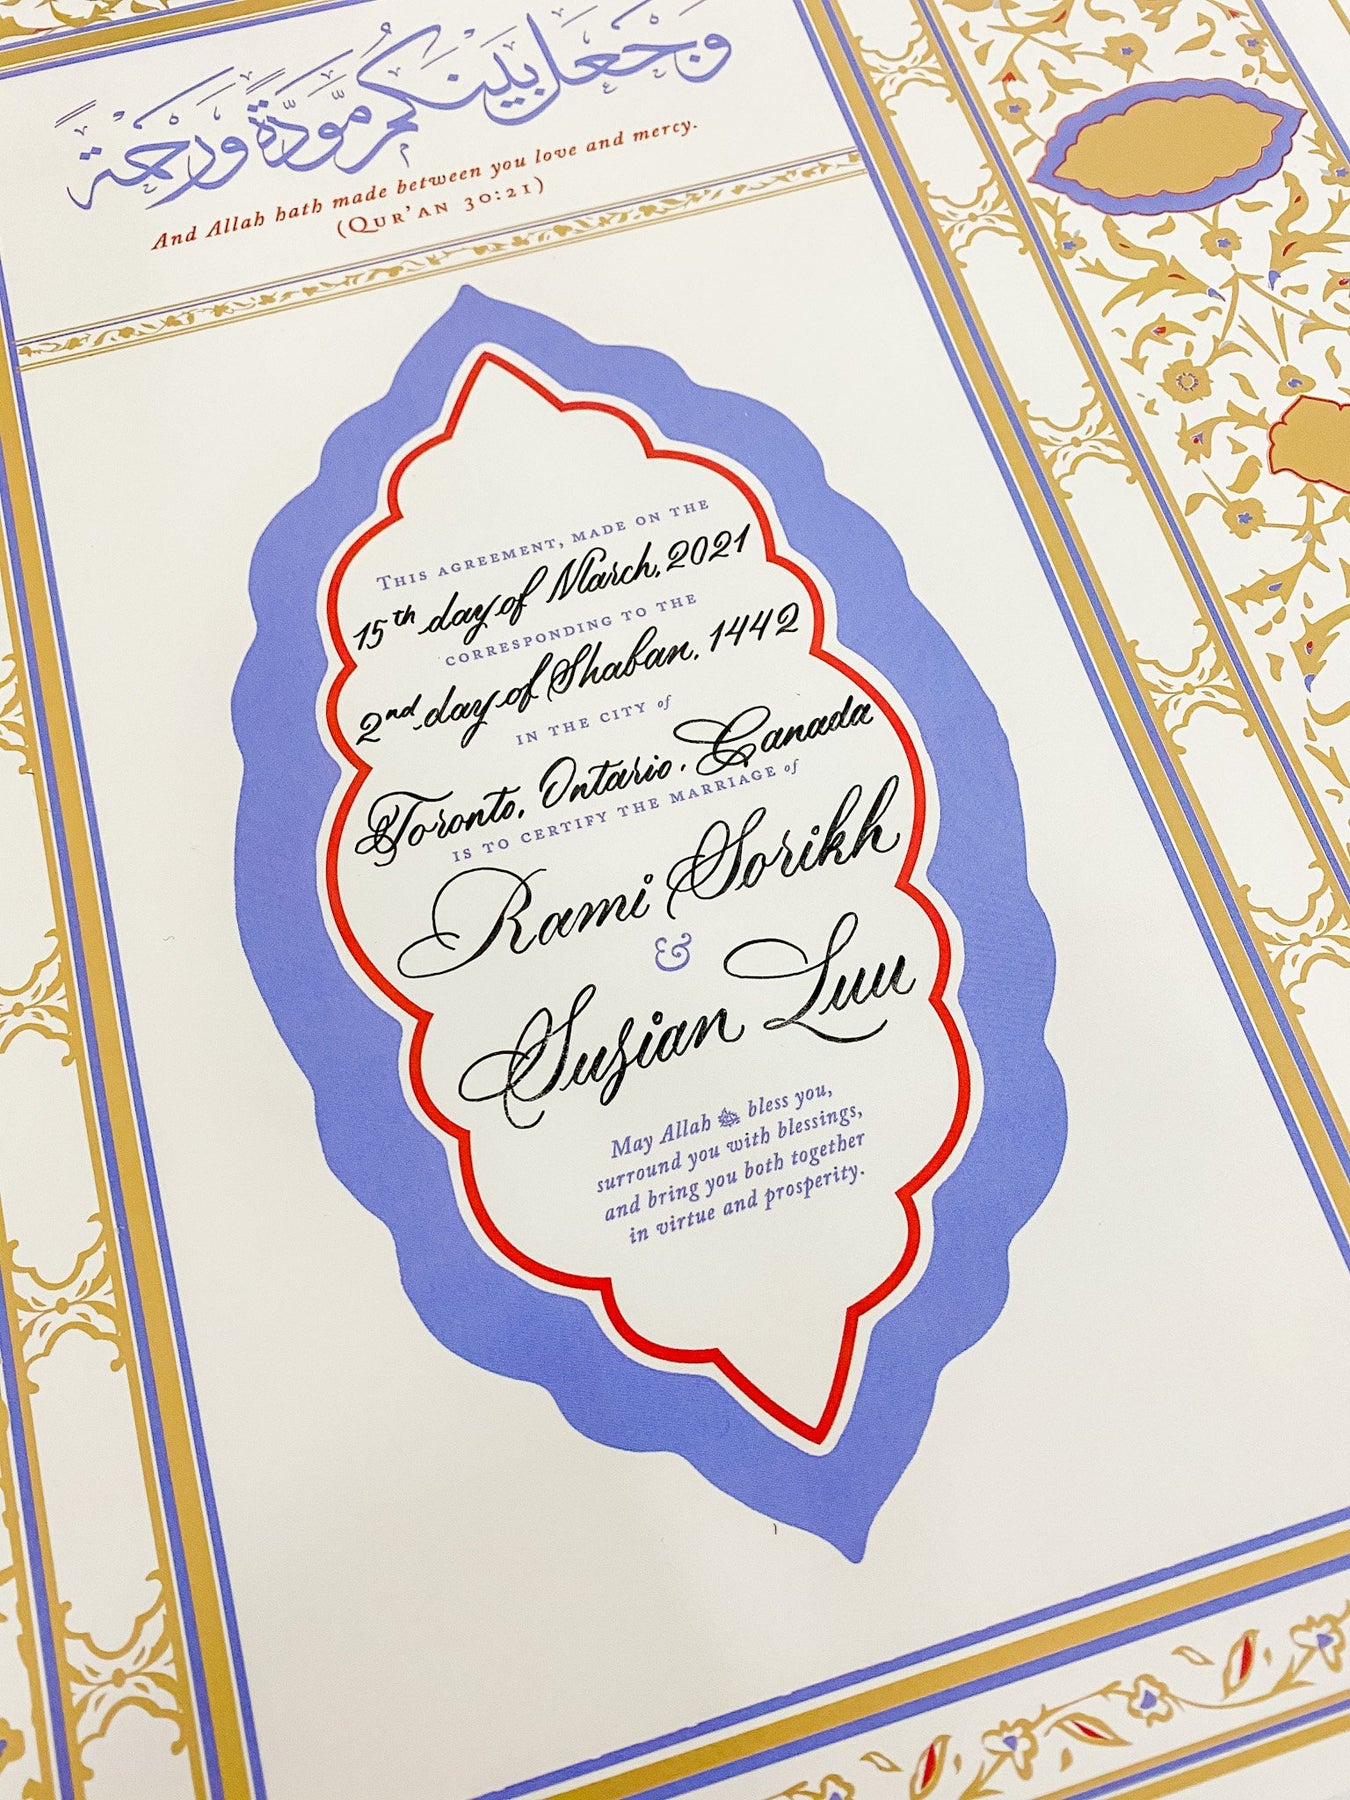 وَجَعَلَ بَيْنَكُم مَّوَدَّةً وَرَحْمَةً
And Allah hath made between you love and mercy.
(Qur’an 30:21)
This agreement, made on the
15th day of March, 2021
corresponding to the
2nd day of Shaban, 1442
in the city of
Toronto, Ontario, Canada
is to certify the marriage of
Rami Sorikh
&
Suzian Luu
May Allah ﷻ bless you,
surround you with blessings,
and bring you both together
in virtue and prosperity.